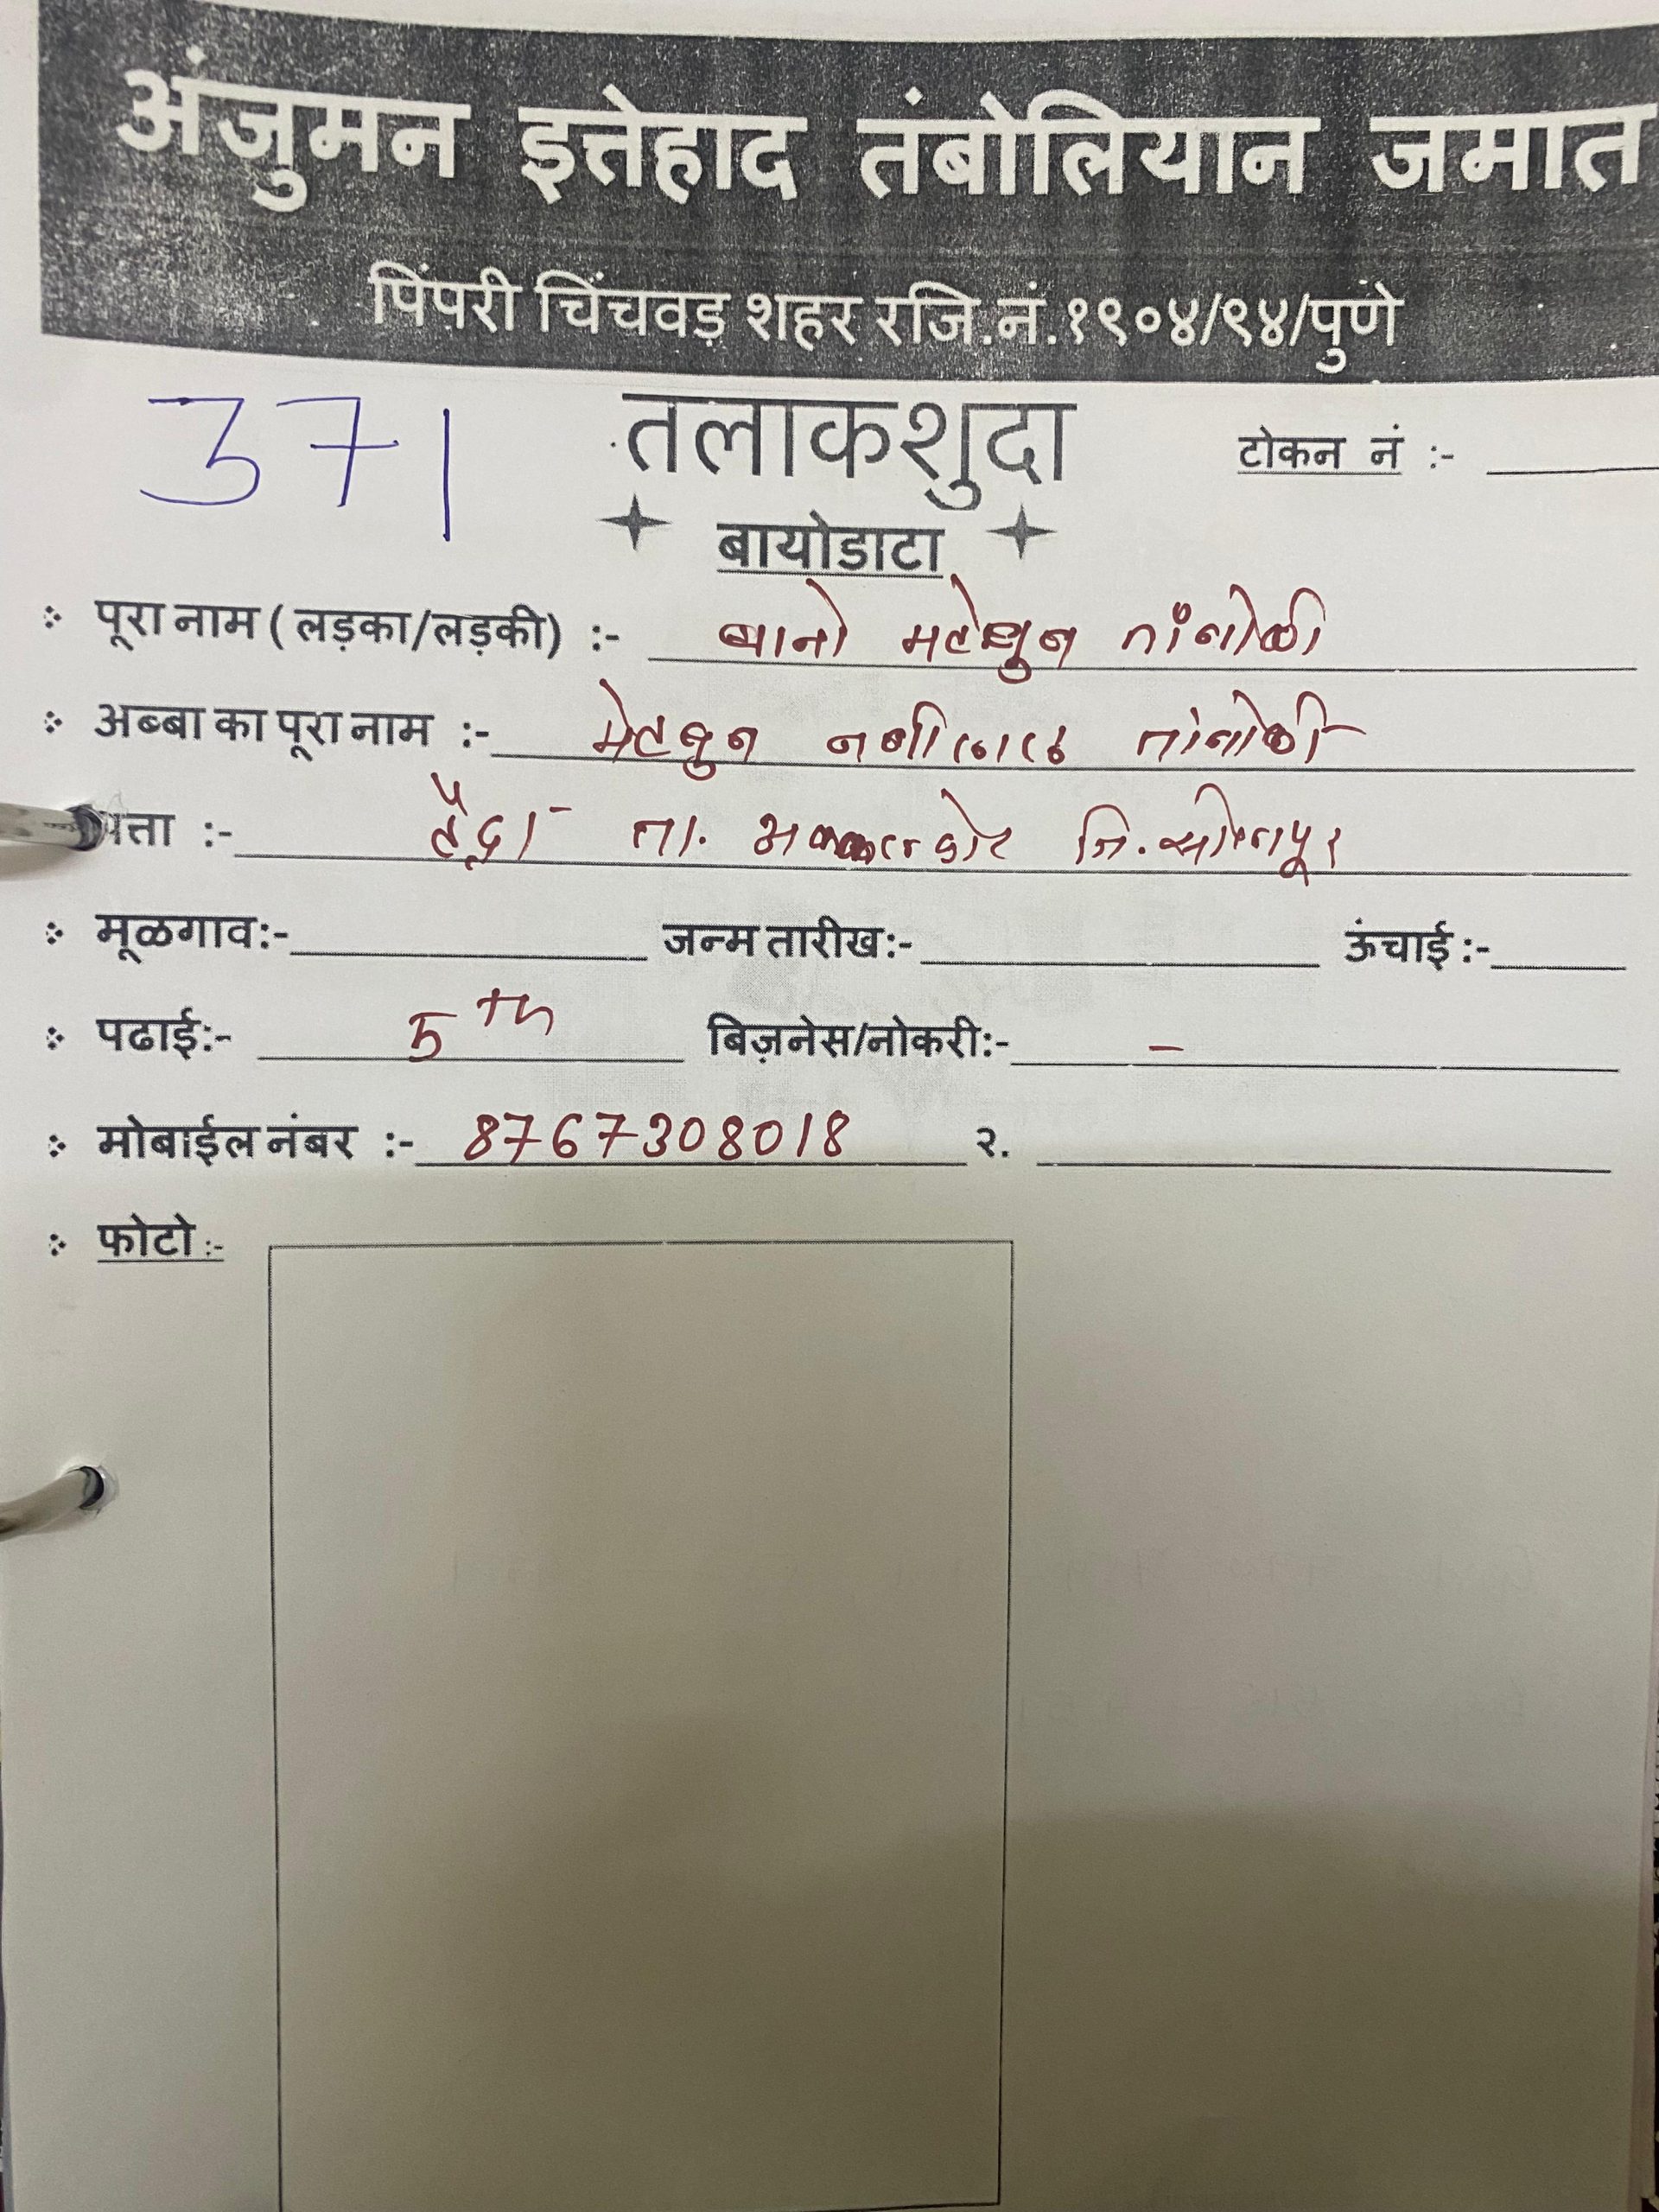 अंजुमन इत्तेहाद तंबोलियान जमात
पिंपरी चिंचवड़ शहर रजि.नं.१९०४/९४/पुणे
371 तलाकशुदा टोकन नं :-
बायोडाटा
पूरा नाम ( लड़का/लड़की) :- बानो मेहबुब तांबोळी
अब्बा का पूरा नाम :- मेहबुब नबीलाल तांबोळी
पत्ता :- ता. अक्कलकोट जि. सोलापूर
मूळगाव:- जन्म तारीख:- ऊंचाई :-
पढाई:- 5th बिज़नेस/नोकरी:- -
मोबाईल नंबर :- 8767308018 २.
फोटो :-